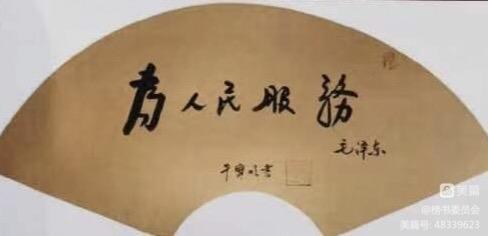 为人民服務
毛泽东
美篇
@榜书委员会
美篇号: 48339623